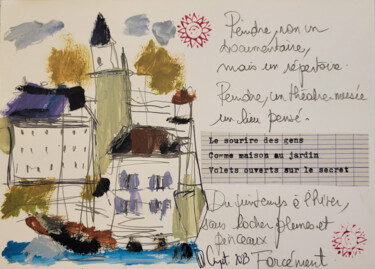 Peindre, non un
documentaire,
mais un répertoire.
Peindre, un théâtre-musée
un lieu pensé.
Le sourire des gens
Comme maison au jardin
Volets ouverts sur le secret
Du printemps à l'hiver,
sans
et
Forcément